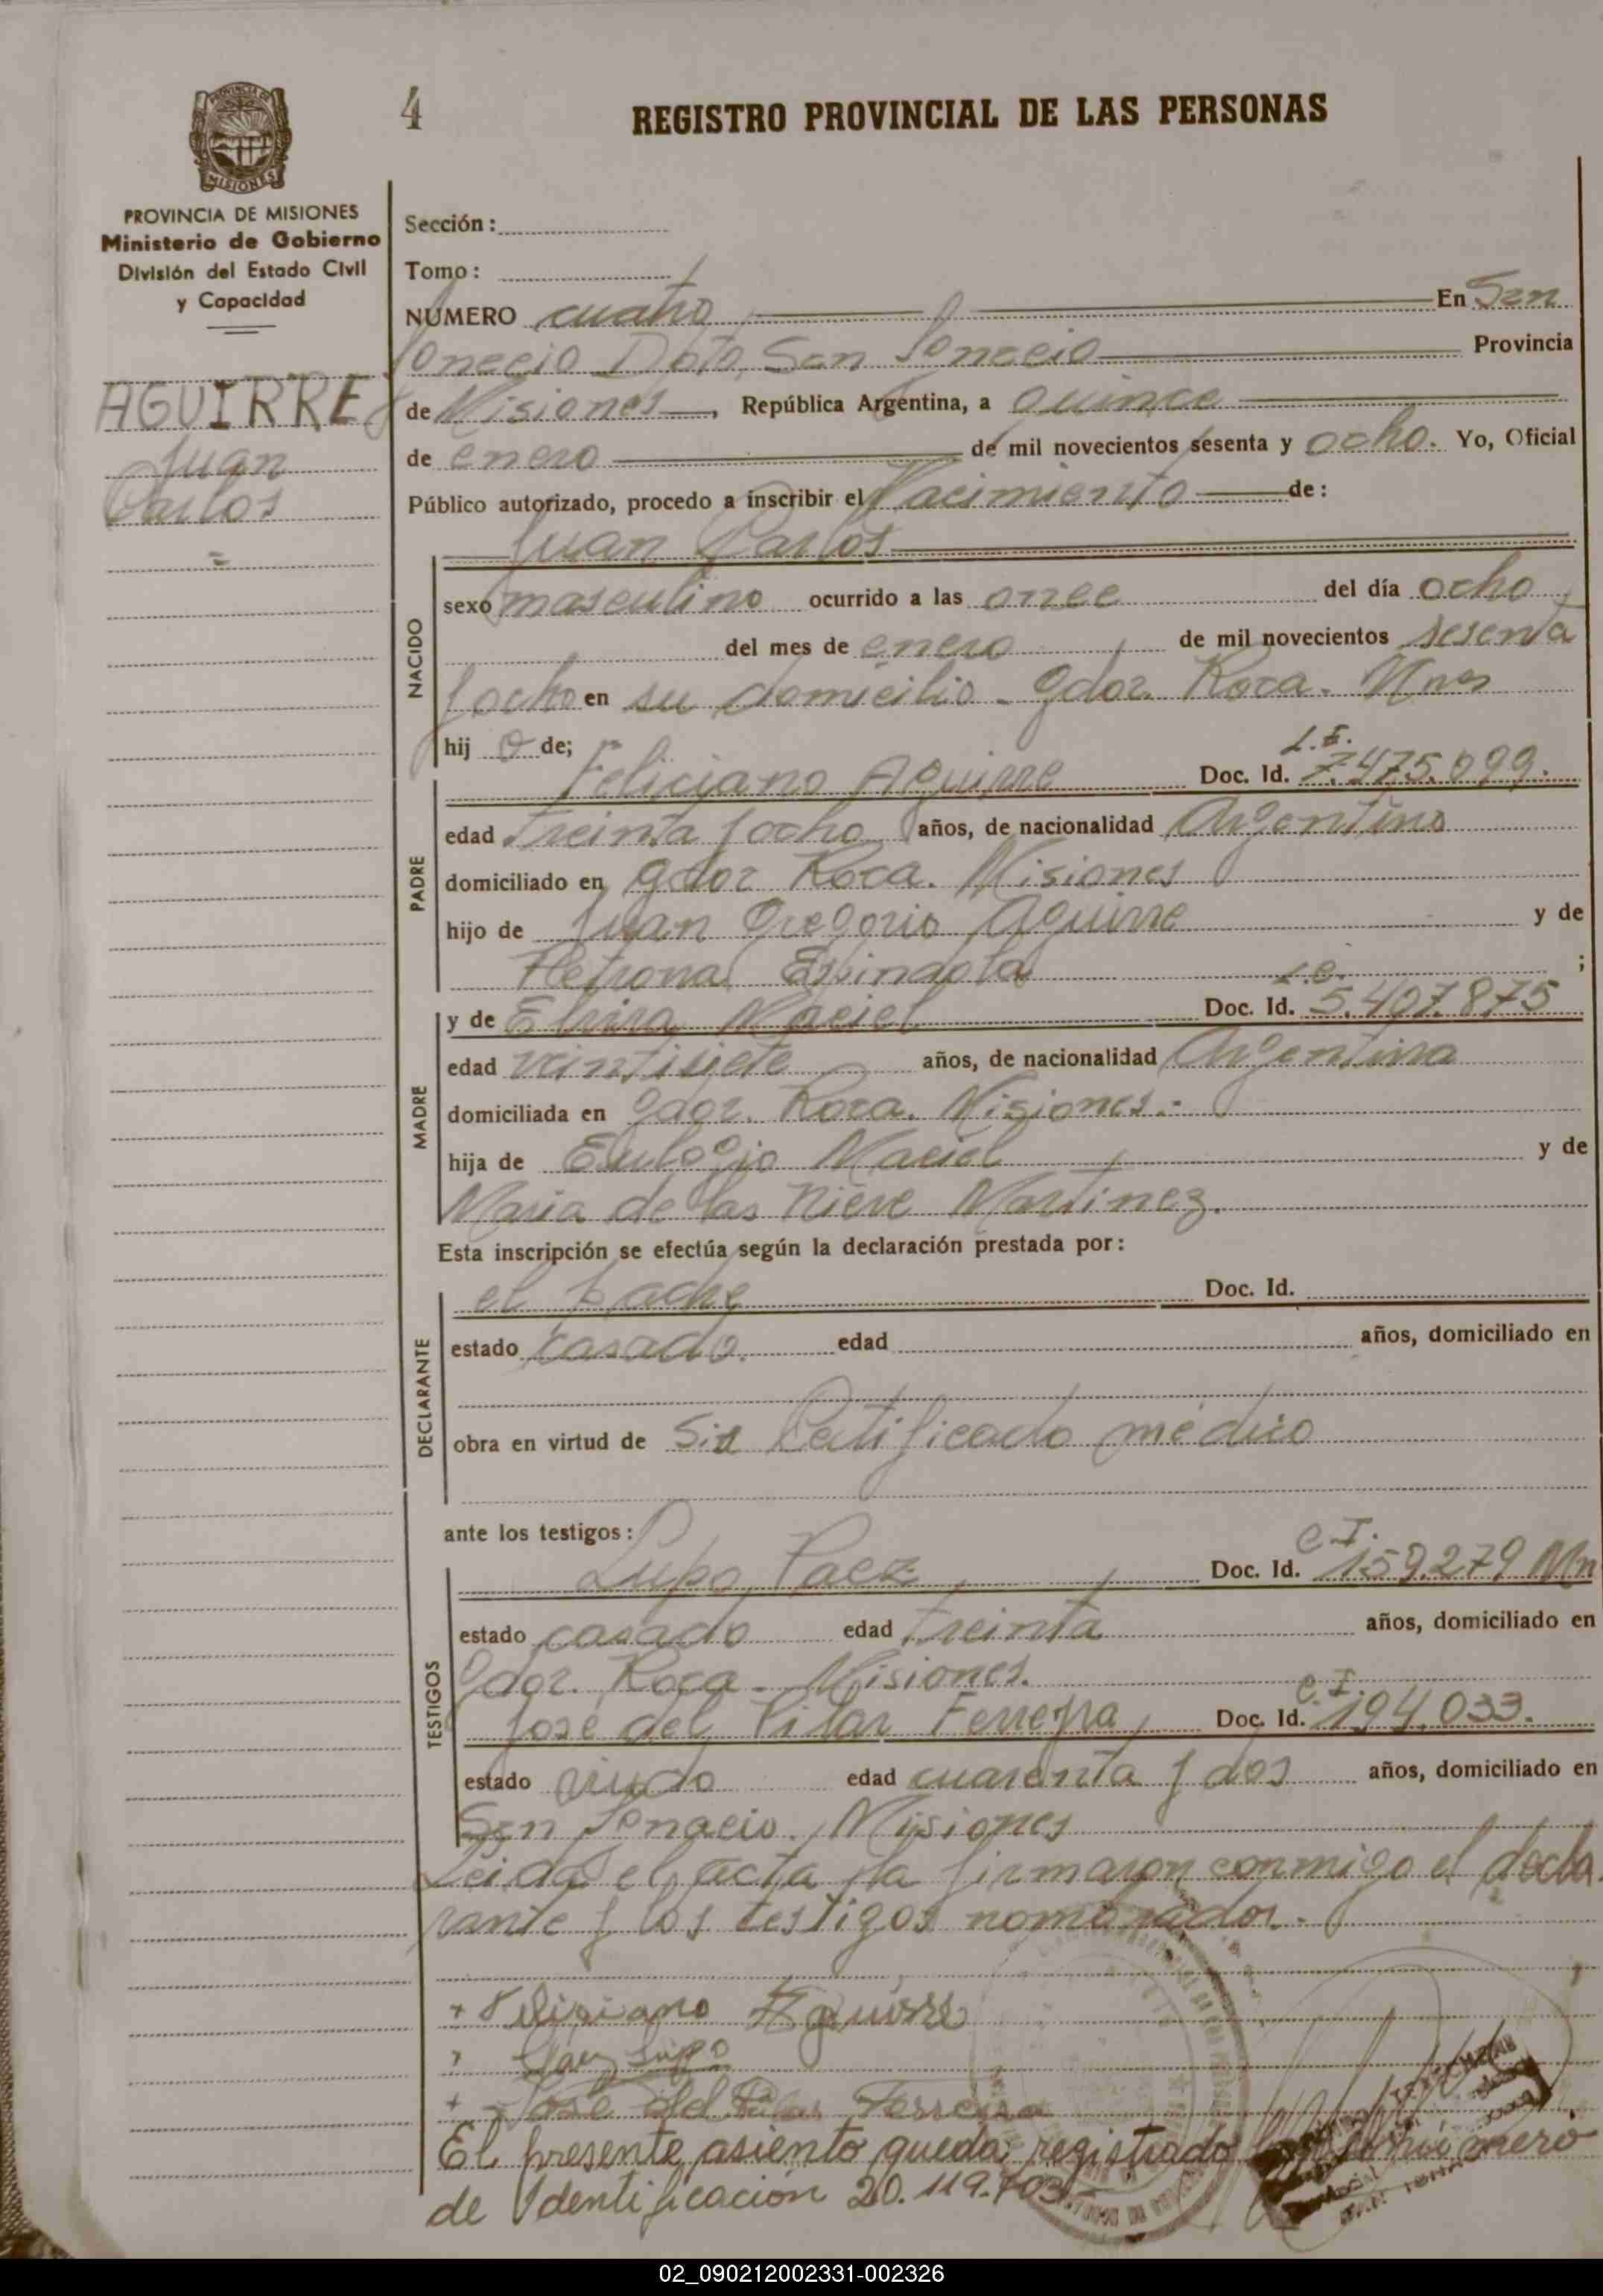 4
REGISTRO PROVINCIAL DE LAS PERSONAS
PROVINCIA DE MISIONES
Ministerio de Gobierno
División del Estado Civil
y Capacidad
AGUIRRE
Juan
Carlos
Sección:
Tomo:
NUMERO cuatro En San
Ignacio Dpto, San Ignacio Provincia
de Misiones, República Argentina, a quince
de enero de mil novecientos sesenta y ocho. Yo, Oficial
Público autorizado, procedo a inscribir el Nacimiento de:
Juan Carlos
NACIDO
sexo masculino ocurrido a las once del día ocho
del mes de enero de mil novecientos sesenta
y ocho en su domicilio - Gdor. Roca. Mnes
hij o de;
Feliciano Aguirre Doc. Id. L.E. 7.475.099.
PADRE
edad treinta y ocho años, de nacionalidad Argentino
domiciliado en Gdor Roca. Misiones
hijo de Juan Gregorio Aguirre y de
Petrona Espindola ;
MADRE
y de Elvira Maciel Doc. Id. L.C. 5.407.875
edad veintisiete años, de nacionalidad Argentina
domiciliada en Gdor. Roca. Misiones.-
hija de Eulogio Maciel y de
Maria de las Nieve Martinez.
Esta inscripción se efectúa según la declaración prestada por:
DECLARANTE
el padre Doc. Id.
estado casado. edad años, domiciliado en
obra en virtud de Sin Certificado médico
ante los testigos:
TESTIGOS
Lupo Paez Doc. Id. C.I. 159.279 Mn
estado casado edad treinta años, domiciliado en
Gdor. Roca - Misiones.
José del Pilar Ferreyra Doc. Id. C.I. 194.033.
estado viudo edad cuarenta y dos años, domiciliado en
San Ignacio. Misiones
Leida el acta la firmaron conmigo el decla
rante y los testigos nombrados.-
+ Feliciano Aguirre
Paez Lupo
+ José del Pilar Ferreira
El presente asiento queda registrado número
de Identificación 20.119.703.-
02_090212002331-002326